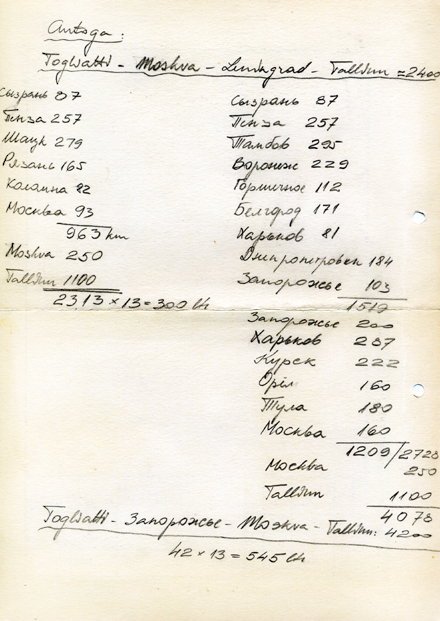 Autoga:
Togliatti - Moskva - Leningrad - Tallinn = 2400
Сызрань 87
Пенза 257
Шацк 279
Рязань 165
Коломна 82
Москва 93
963 km
Moskva 250
Tallinn 1100
23,13 × 13 = 300 lh
Сызрань 87
Пенза 257
Тамбов 295
Воронеж 229
Горшечное 112
Белгород 171
Харьков 81
Днипропетровск 184
Запорожье 103
1519
Запорожье 200
Харьков 287
Курск 222
Орёл 160
Тула 180
Москва 160
1209/2728
Москва 250
Tallinn 1100
4078
Togliatti - Запорожье - Moskva - Tallinn: 4200
42 × 13 = 545 lh